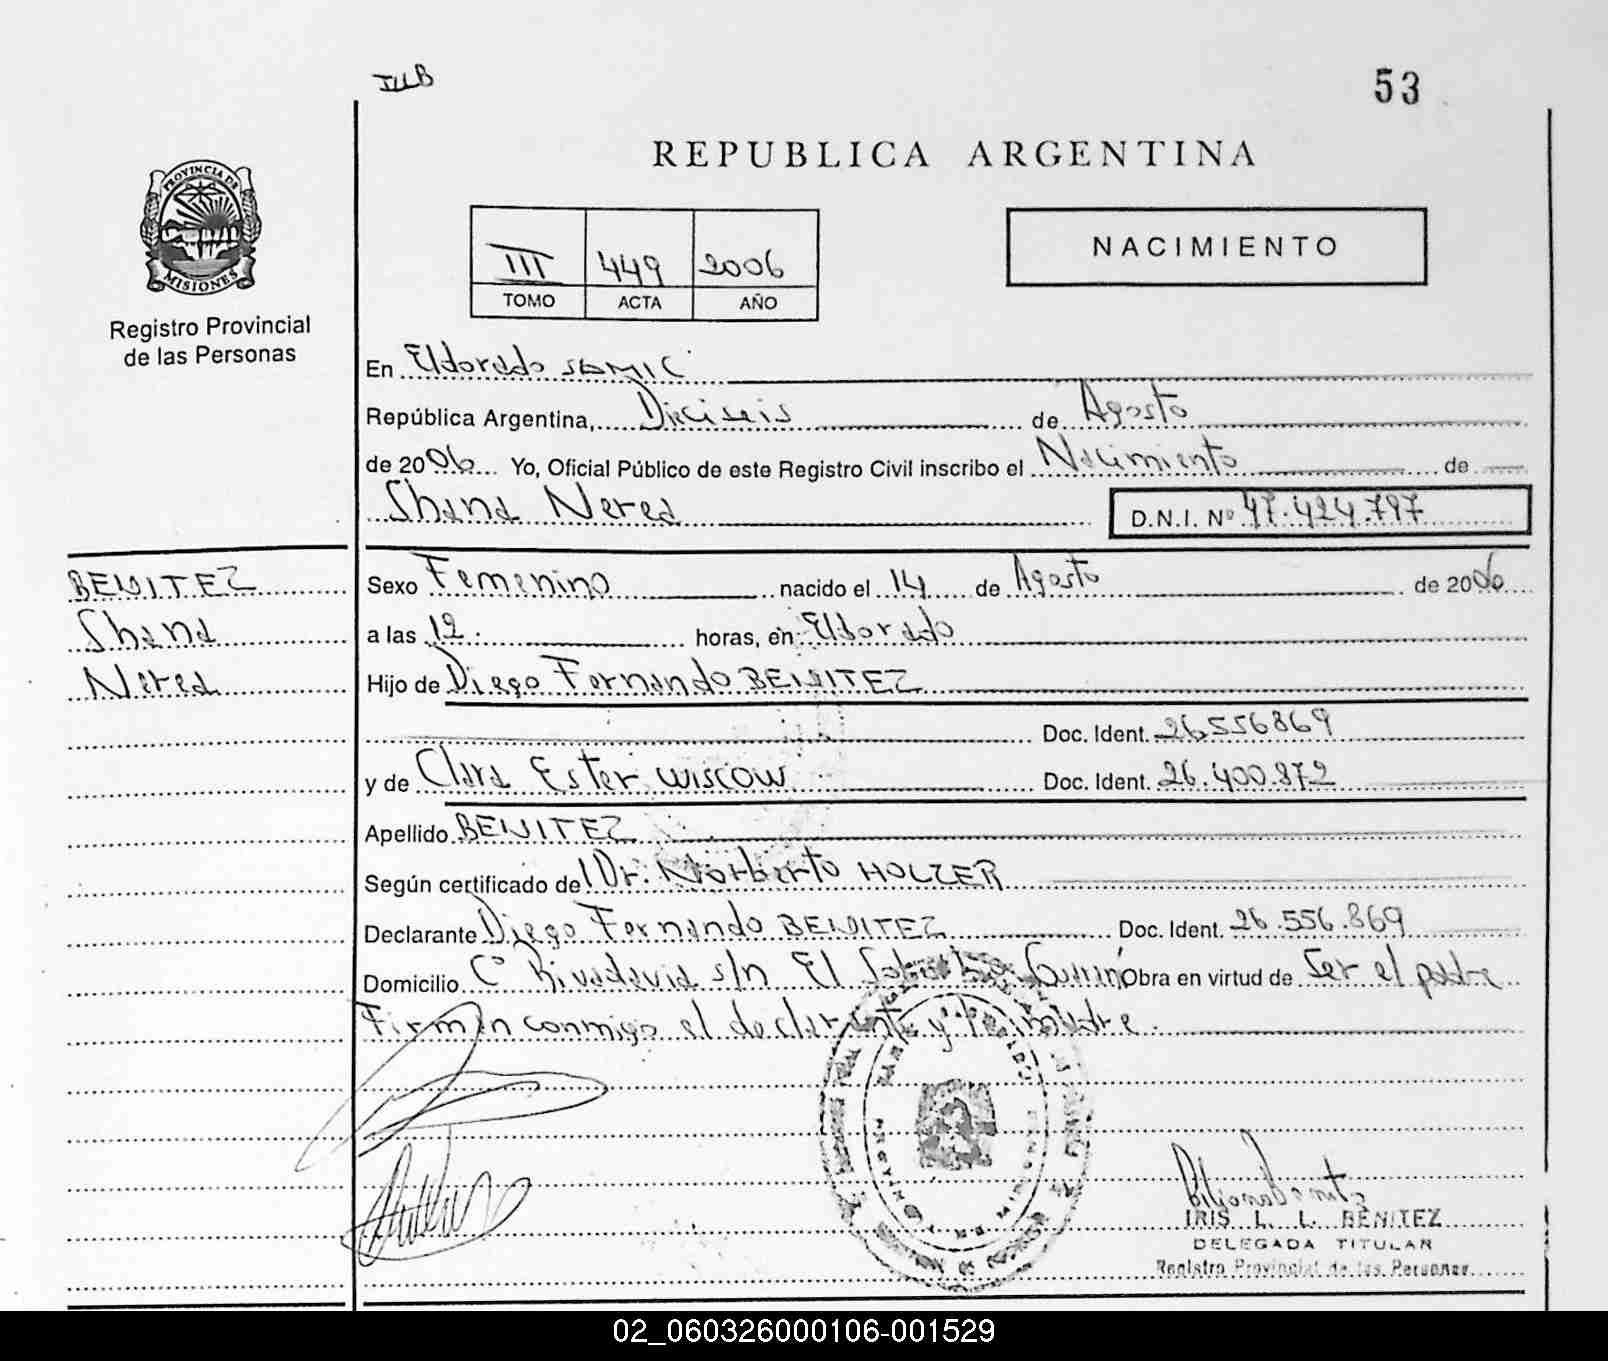 IUB
53
REPUBLICA ARGENTINA
PROVINCIA DE
MISIONES
Registro Provincial
de las Personas
III 449 2006
TOMO ACTA AÑO
NACIMIENTO
En Eldorado SAMIC
República Argentina, Dieciseis de Agosto
de 2006 Yo, Oficial Público de este Registro Civil inscribo el Nacimiento de
Shana Nerea D.N.I. Nº 47.424.797
BENITEZ
Shana
Nerea
Sexo Femenino nacido el 14 de Agosto de 2006
a las 12. horas, en Eldorado
Hijo de Diego Fernando BENITEZ
Doc. Ident. 26.556869
y de Clara Ester WISCOW Doc. Ident. 26.400.872
Apellido BENITEZ
Según certificado de Dr. Norberto HOLZER
Declarante Diego Fernando BENITEZ Doc. Ident. 26.556.869
Domicilio Cº Rivadavia s/n El Obra en virtud de Ser el padre
Firman conmigo el declarante y la madre.
IRIS L. L. BENITEZ
DELEGADA TITULAR
Registro Provincial de las Personas
02_060326000106-001529